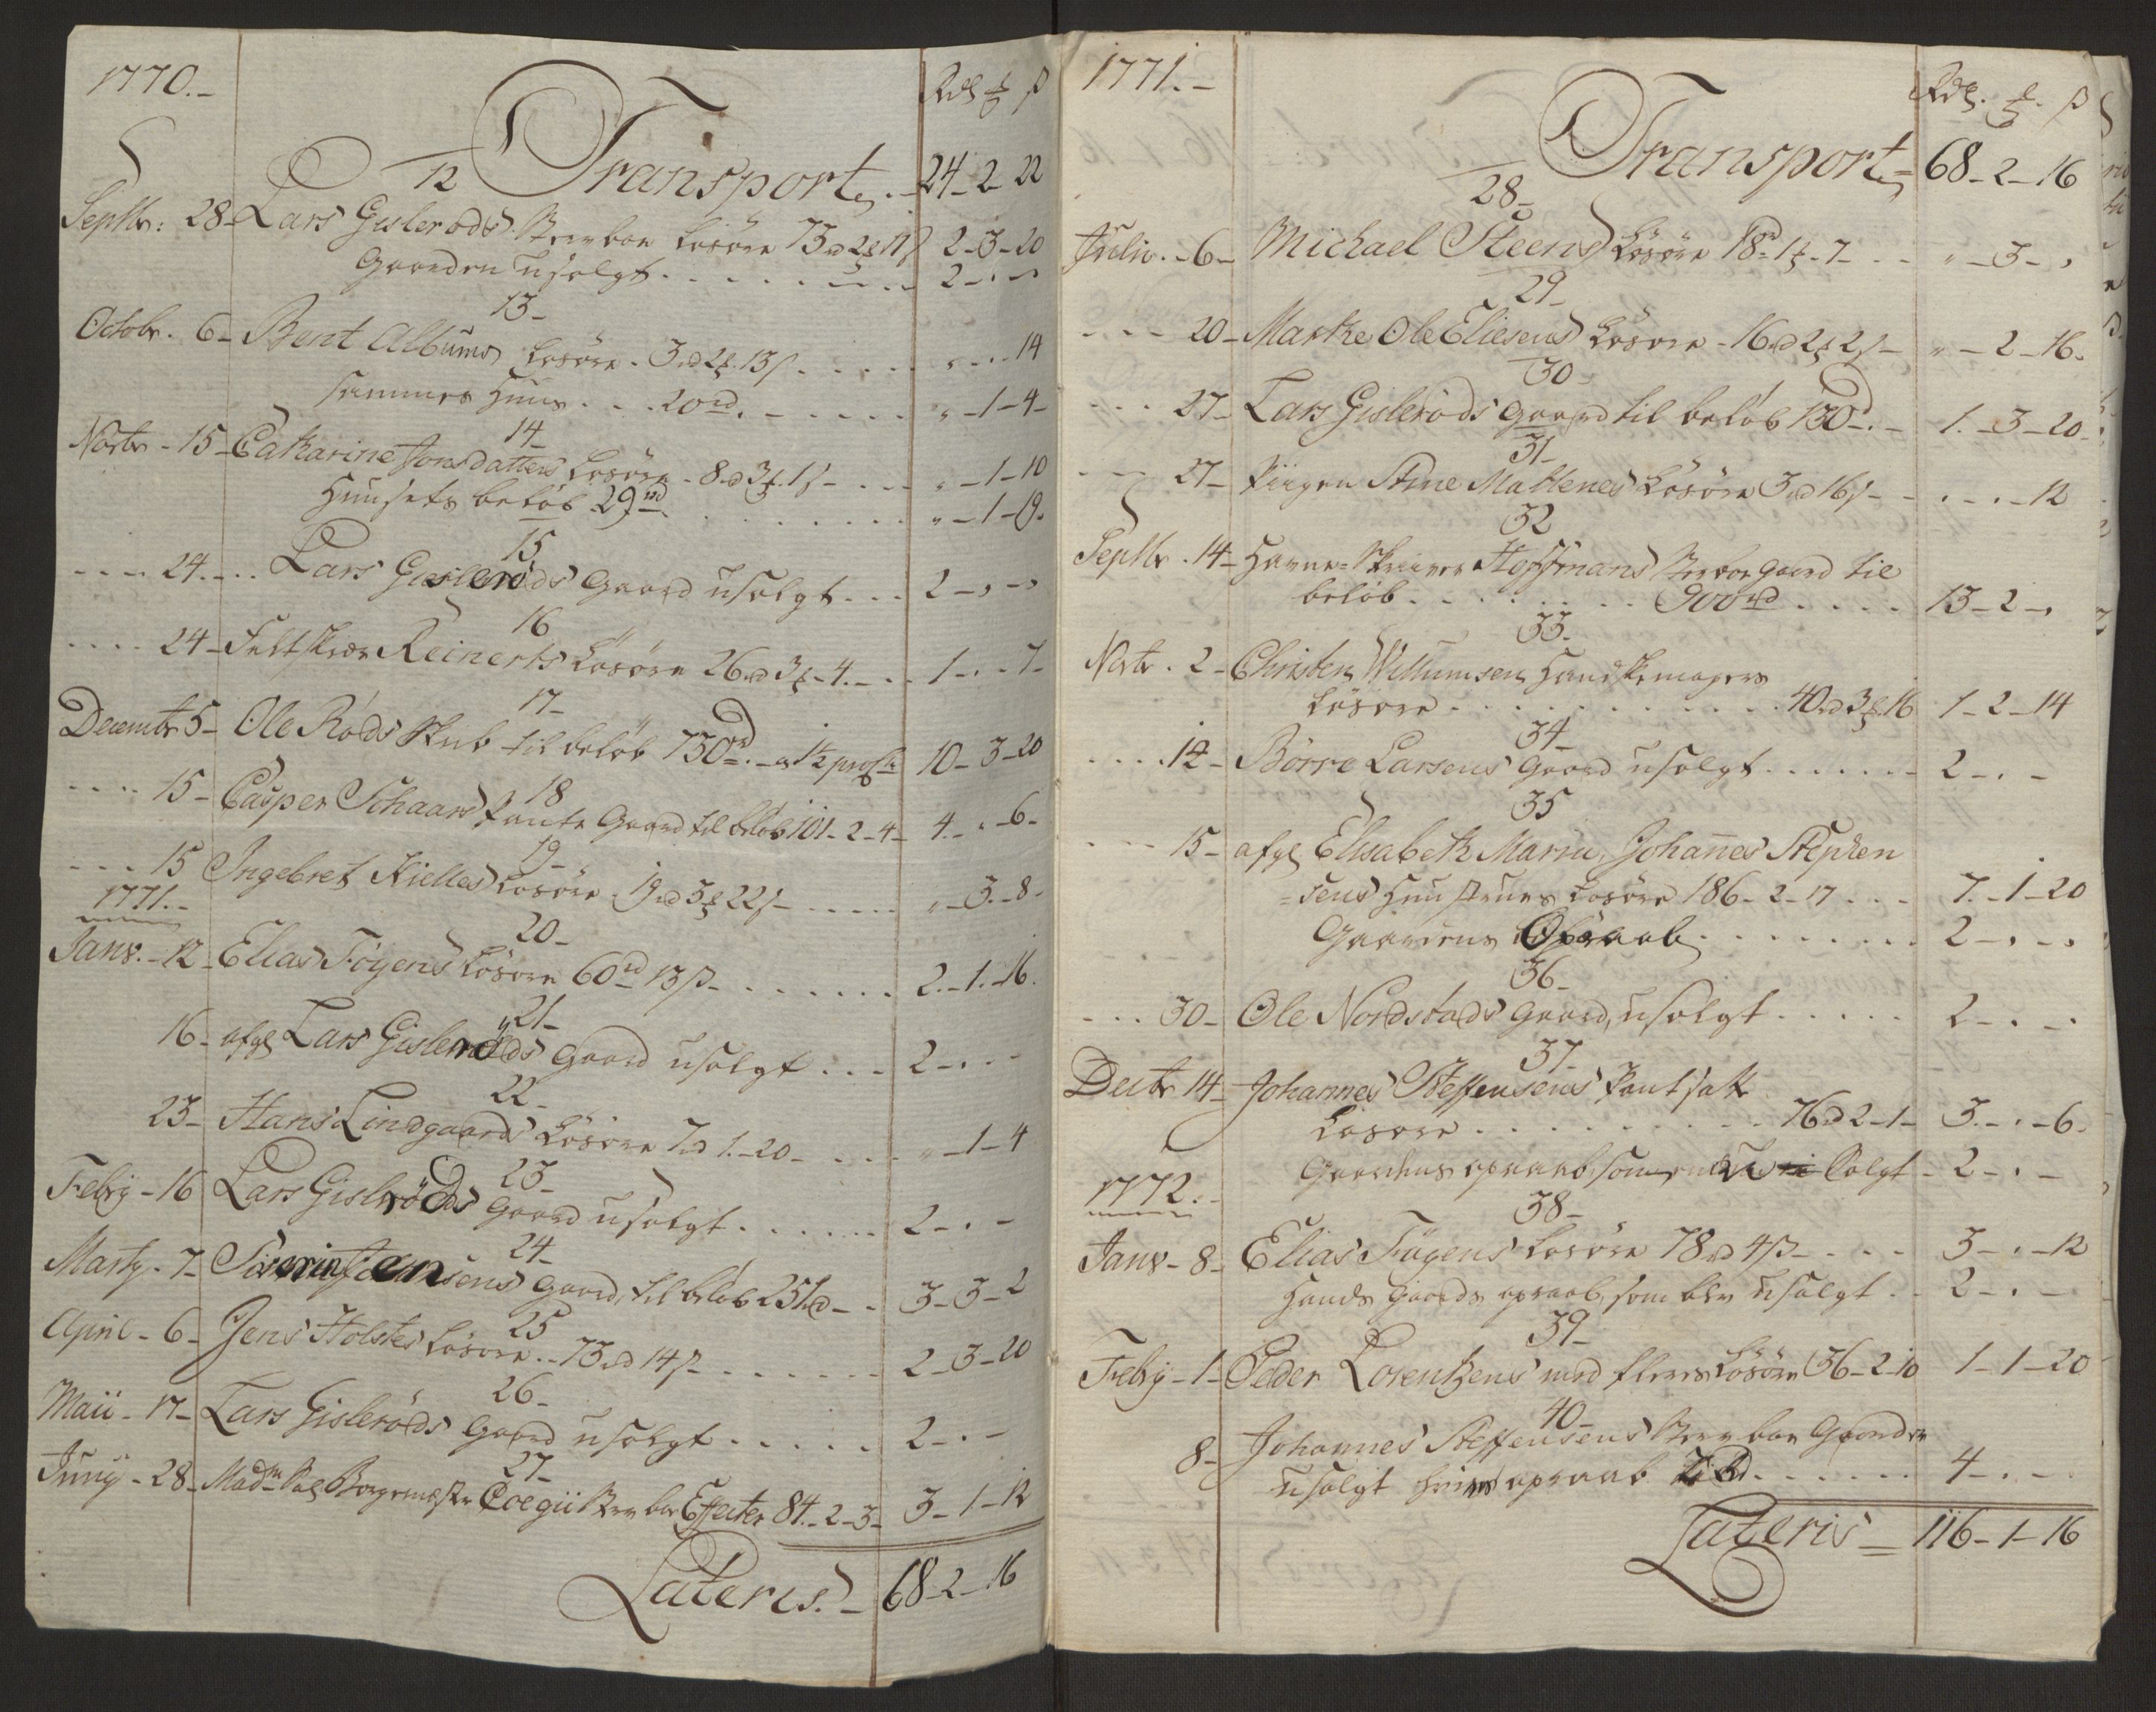 1770.-
Rdl ƒ β
Transport . - 24 - 2 - 22
12
Septbr: 28 - Lars Gislerøds Sterboe Løsøre 73 rd 2 ƒ 17 β 2 - 3 - 20
Gaarden usolgt . . . . . . . 2 - . -
13 -
Octobr. 6 - Bent Albums Løsøre . 3 rd 2 ƒ . 13 β . . . . . " . . . 14
Sammes Huus . . . 20 rd . . . . . . " - 1 - 4 -
14 -
Novbr - 15 - Catharine Jonsdatters Løsøre - 8 rd 3 ƒ . 1 β - . . . " - 1 - 10
Huusets beløb 29 rd . . . . . . . . . " - 1 - 19.
15
- - - 24 . . . Lars Gislerøds Gaard usolgt . . . 2 - , - ,
16
. . . . 24 - Feltskier Reinerts Løsøre 26 rd 3 ƒ - 4. - . . 1 - . . 7 -
17 -
Decembr 5 - Ole Røds Skib til beløb 730 rd . - a 1½ proCto 10 - 3 - 20
18
. . . . 15 - Casper Schaars Pante Gaard til beløb 101 - 2 - 4 - 4. . . - 6 -
19 -
- - - 15 Ingebret Kielles Løsøre . 19 rd 3 ƒ 22 β - . . . . . " - 3. - 8 -
1771. -
20 -
Janv. - 12 - Elias Föyens Løsøre 60 rd 13 β - . . . . . . . 2. - 1. - 16.
21 -
16 - afgl Lars Gislerøds Gaard usolgt . . . 2 - . . -
22 -
23 - Hans Lindgaards Løsøre 7 rd 1. - 20 - . . . . " - 1 - 4
23 -
Febry - 16 Lars Gislerøds Gaard usolgt . . . . . . 2 - . -
24 -
Marty. - 7 - Gaard, til beløb 251 rd - - 3 - 3 - 2
25
April - 6 - Jens Holstes Løsøre . . 73 rd 14 β - . . . . . . . 2 - 3 - 20
26 -
Maii - 17 - Lars Gislerøds Gaard usolgt . . . . . 2 - . -
27 -
Juny - 28 - Madme Sal Borgemester Coegii Sterboe Effecter 84. - 2 - 3 - 3 - 1 - 12
Lateris. - 68 - 2 - 16
1771. -
Rdl. ƒ. β
Transport = 68 - 2 - 16
28 -
Juliu. - 6 - Michael Steens Løsøre 18 rd 1 ƒ - 7 - . . " - 3 - ,
29 -
- - - 20 - Marthe Ole Eliesens Løsøre - 16 rd 2 ƒ 2 β - " - 2 - 16.
30 -
- - - 27 - Lars Gislerøds Gaard til beløb 130 rd . - 1. - 3 - 20 -
31 -
- - - 27 - Piigen Stine Mallenes Løsøre 3 rd 16 β - - . - . - 12
32
Septbr. 14 - Havne-Skriver Hoffmans Sterboe Gaard til
beløb . . . . . . . . 900 rd . . . . . 13 - 2 - ,
33 -
Novbr. 2 - Christen Willumsen Handskemagers
Løsøre . . . . . . . . . . . . . 40 rd 3 ƒ . 16 1 - 2 - 14
34 -
. . . . 14 - Börre Larsens Gaard usolgt . . . . . . . 2 - . -
35
- - - - 15 - afgl Elisabeth Maria, Johañes Stephen
= sens Huustrues Løsøre 186 - 2 - 17 . . . 7. - 1 - 20
Gaardens Opraab . . . . . . . . . 2 - , - ,
36 -
- . . . 30 - Ole Nordstads Gaard, usolgt . . . . . 2 - . - .
37 -
Decbr 14 - Johannes Steffensens Pantsatte
Løsøre . . . . . . . . . . 76 rd 2 - 1 - 3. - . - 6.
Gaardens opraab, som Solgt - 2 - . -
1772. -
38 -
Janv - 8 - Elias Föyens Løsøre 78 rd 4 β - . . . 3 - . - 12
Hands Gaards opraab, som blev usolgt . . 2 - . -
39 -
Febry - 1 - Peder Lorentzens med fleres Løsøre 36 - 2 - 10 1 - 1 - 20
40 -
8 - Johannes Steffensens Sterboe Gaarden
usolgt opraab . . . . . . . 4 - . -
Lateris = 116 - 1 - 16